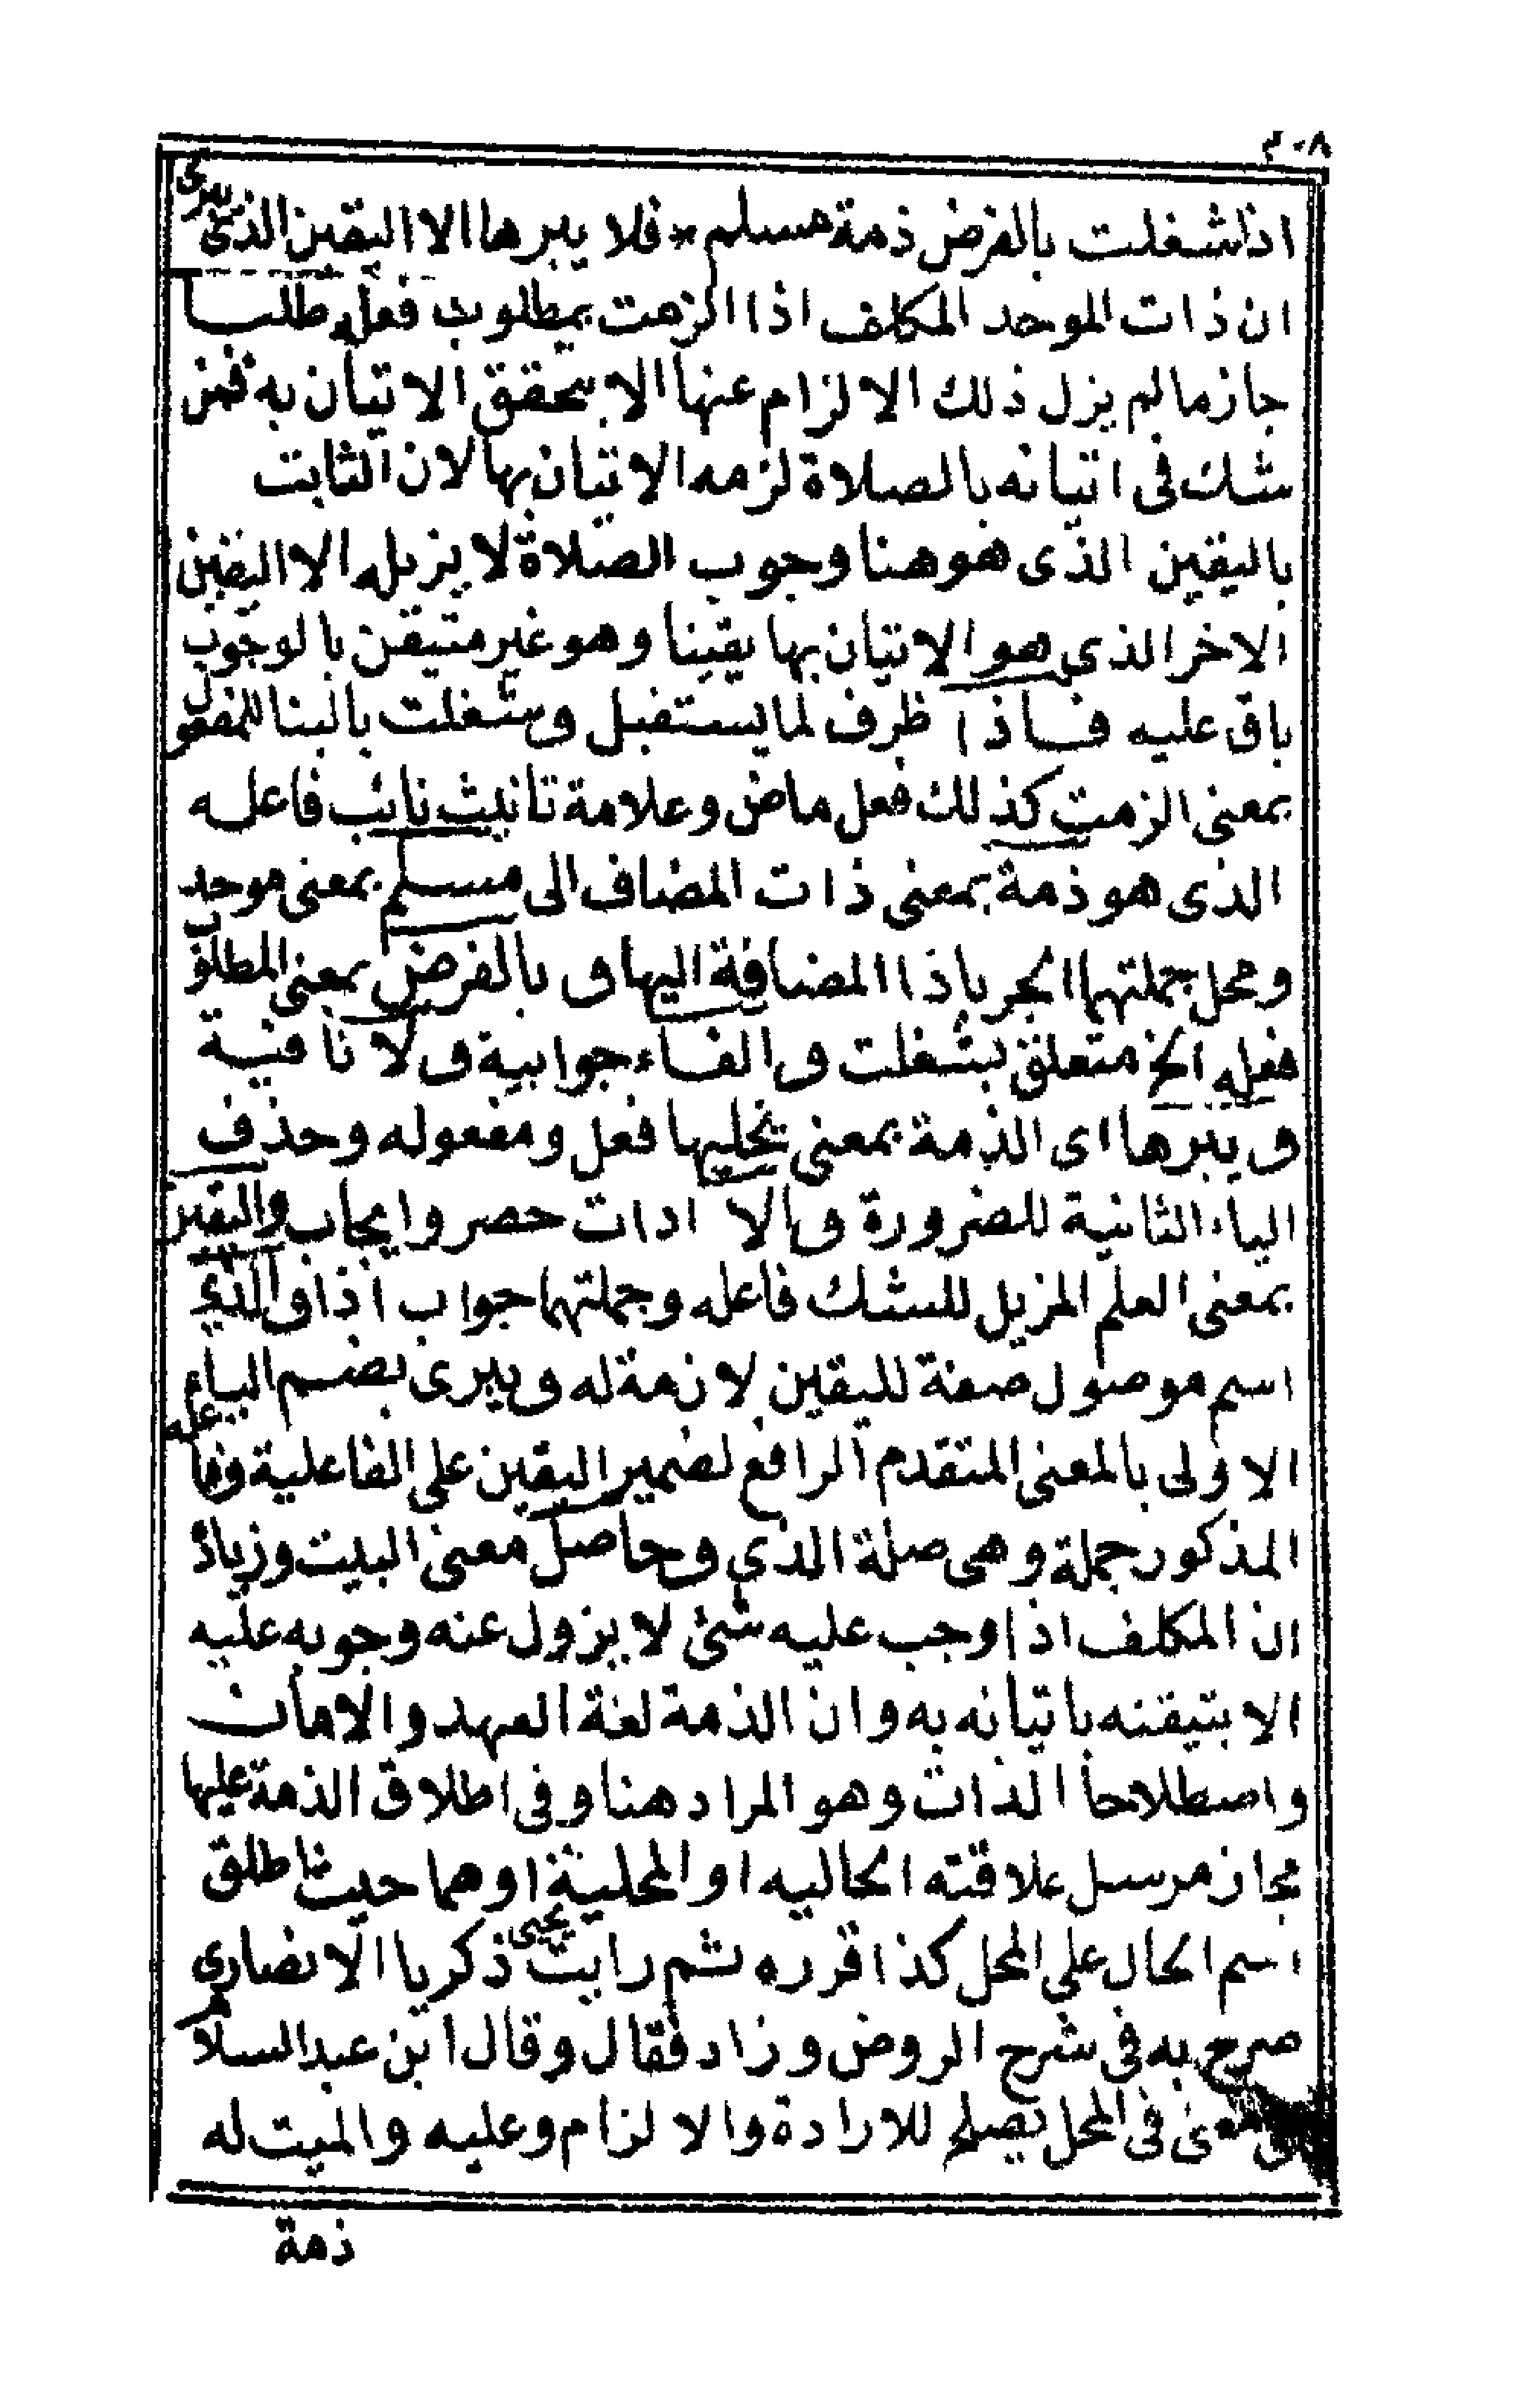 ٢٠٨
اذا شغلت بالفرض ذمة مسلم * فلا يبرها الا اليقين الذي يبرى
ان ذات الموحد المكلف اذا الزمت بمطلوب فعله طلبا
جازما لم يزل ذلك الالزام عنها الا بتحقق الاتيان به فمن
شك فى اتيانه بالصلاة لزمه الاتيان بها لان الثابت
باليقين الذى هو هنا وجوب الصلاة لا يزيله الا اليقين
الاخر الذي هو الاتيان بها يقينا وهو غير متيقن بالوجوب
باق عليه فاذا ظرف لما يستقبل وشغلت بالبنا للمفعول
بمعنى الزمت كذلك فعل ماض وعلامة تانيث نائب فاعله
الذى هو ذمة بمعنى ذات المضاف الى مسلم بمعنى موحد
ومحل جملتهما الجر باذا المضافة اليها و بالفرض بمعنى المطلوب
فعله الخ متعلق بشغلت و الفاء جوابية و لا نافية
و يبرها اى الذمة بمعنى يخليها فعل ومفعوله وحذف
الياء الثانية للضرورة و الا ادات حصر وايجاب واليقين
بمعنى العلم المزيل للشك فاعله وجملتهما جواب اذا و الذي
اسم موصول صفة لليقين لازمة له و يبرى بضم الياء
الاولى بالمعنى المتقدم الرافع لضمير اليقين على الفاعلية وفاعله
المذكور جملة وهى صلة الذي و حاصل معنى البيت وزيادة
ان المكلف اذا وجب عليه شئ لا يزول عنه وجوبه عليه
الا بتيقنه باتيانه به وان الذمة لغة العهد والامان
واصطلاحا الذات وهو المراد هنا وفى اطلاق الذمة عليها
مجاز مرسل علاقته الحاليه او المحلية او هما حيث اطلق
اسم الحال على المحل كذا قرره ثم رايت يحيى ذكريا الانصارى
صرح به فى شرح الروض وزاد فقال وقال ابن عبد السلام
معنى فى المحل يصلح للارادة والالزام وعليه والميت له
ذمة